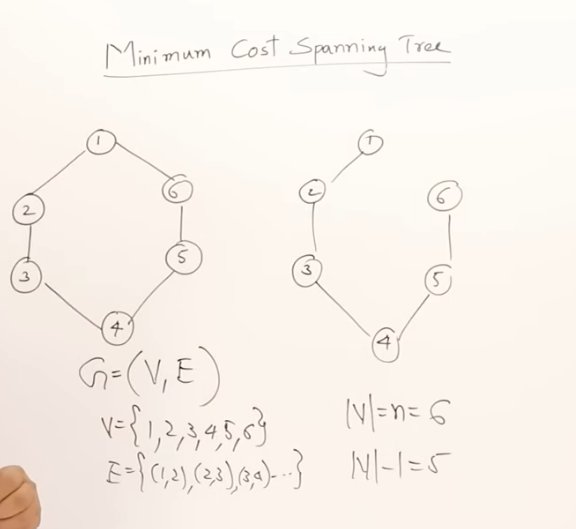 Minimum Cost Spanning Tree
1
2
6
3
5
4
1
2
6
3
5
4
G=(V,E)
V={1,2,3,4,5,6}
E={(1,2),(2,3),(3,4)---}
|V|=n=6
|V|-1=5